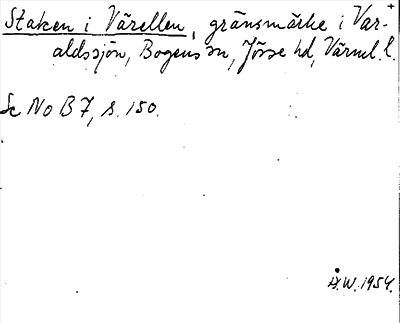 Staken i Värellen, gränsmärke i Var-
aldssjön, Bogens sn, Jösse hd, Värml. l.
Se No B 7, s. 150.
W. 1954.